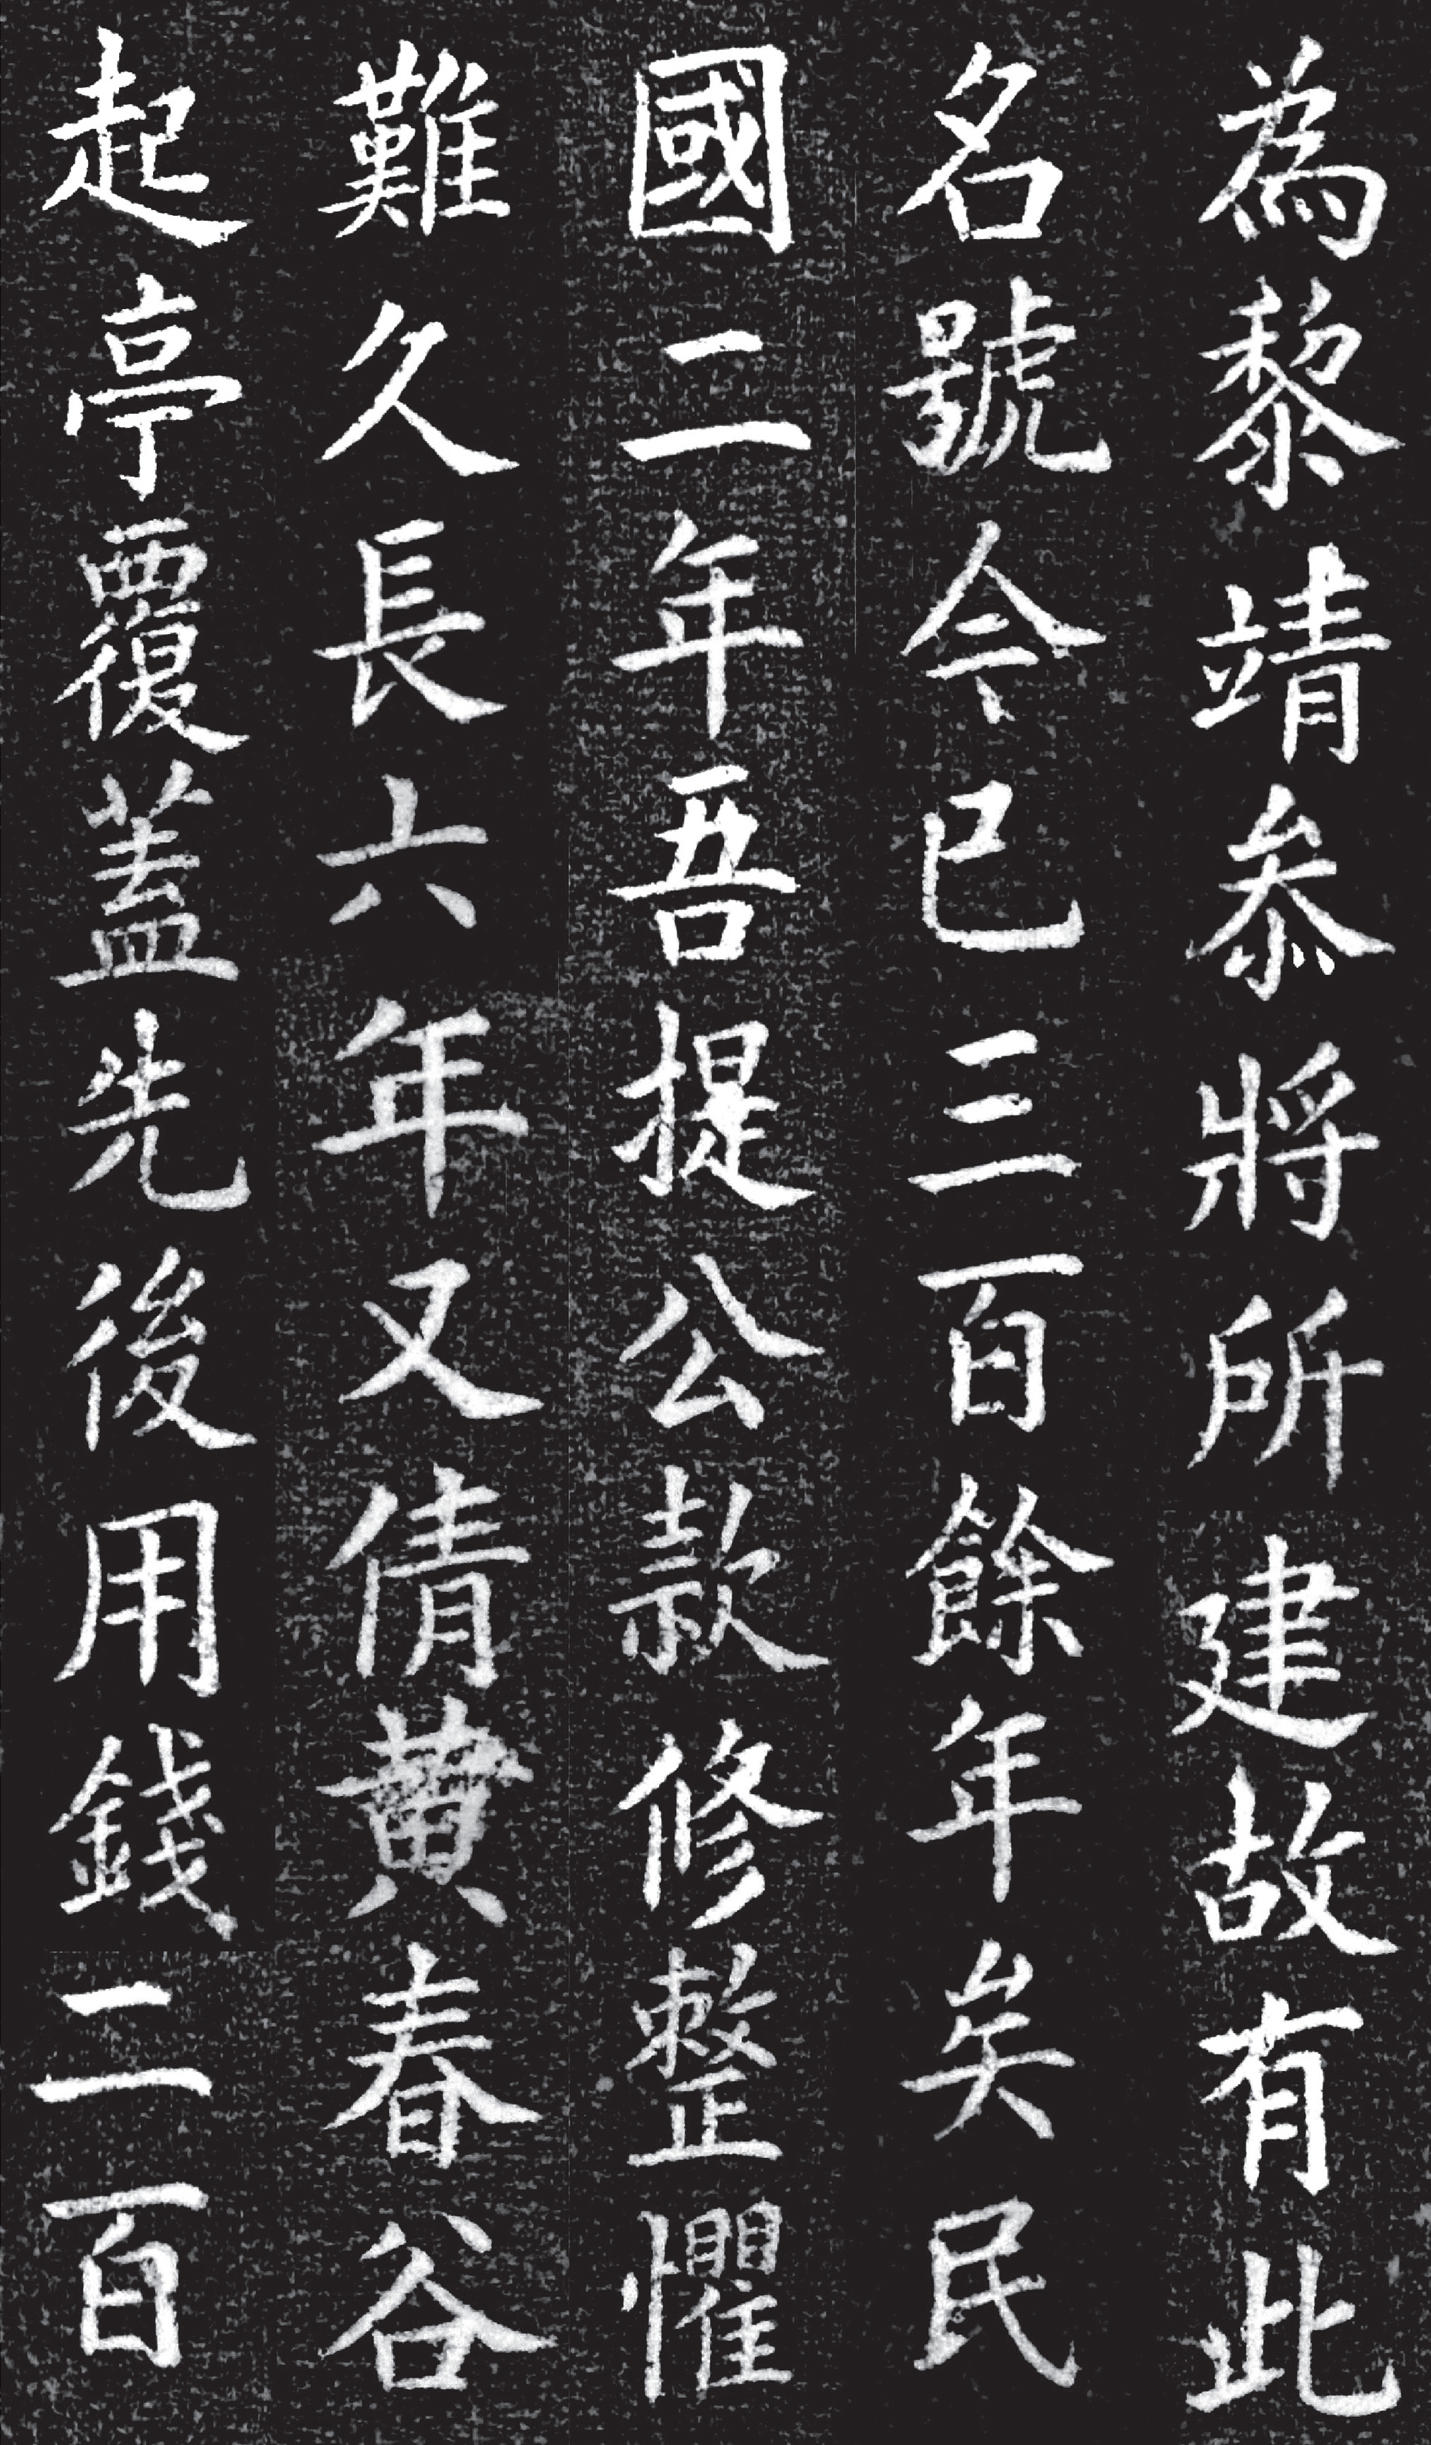 為黎靖叅將所建故有此
名號今已三百餘年矣民
國二年吾提公款修整懼
難久長六年又倩黄春谷
起亭覆蓋先後用錢二百